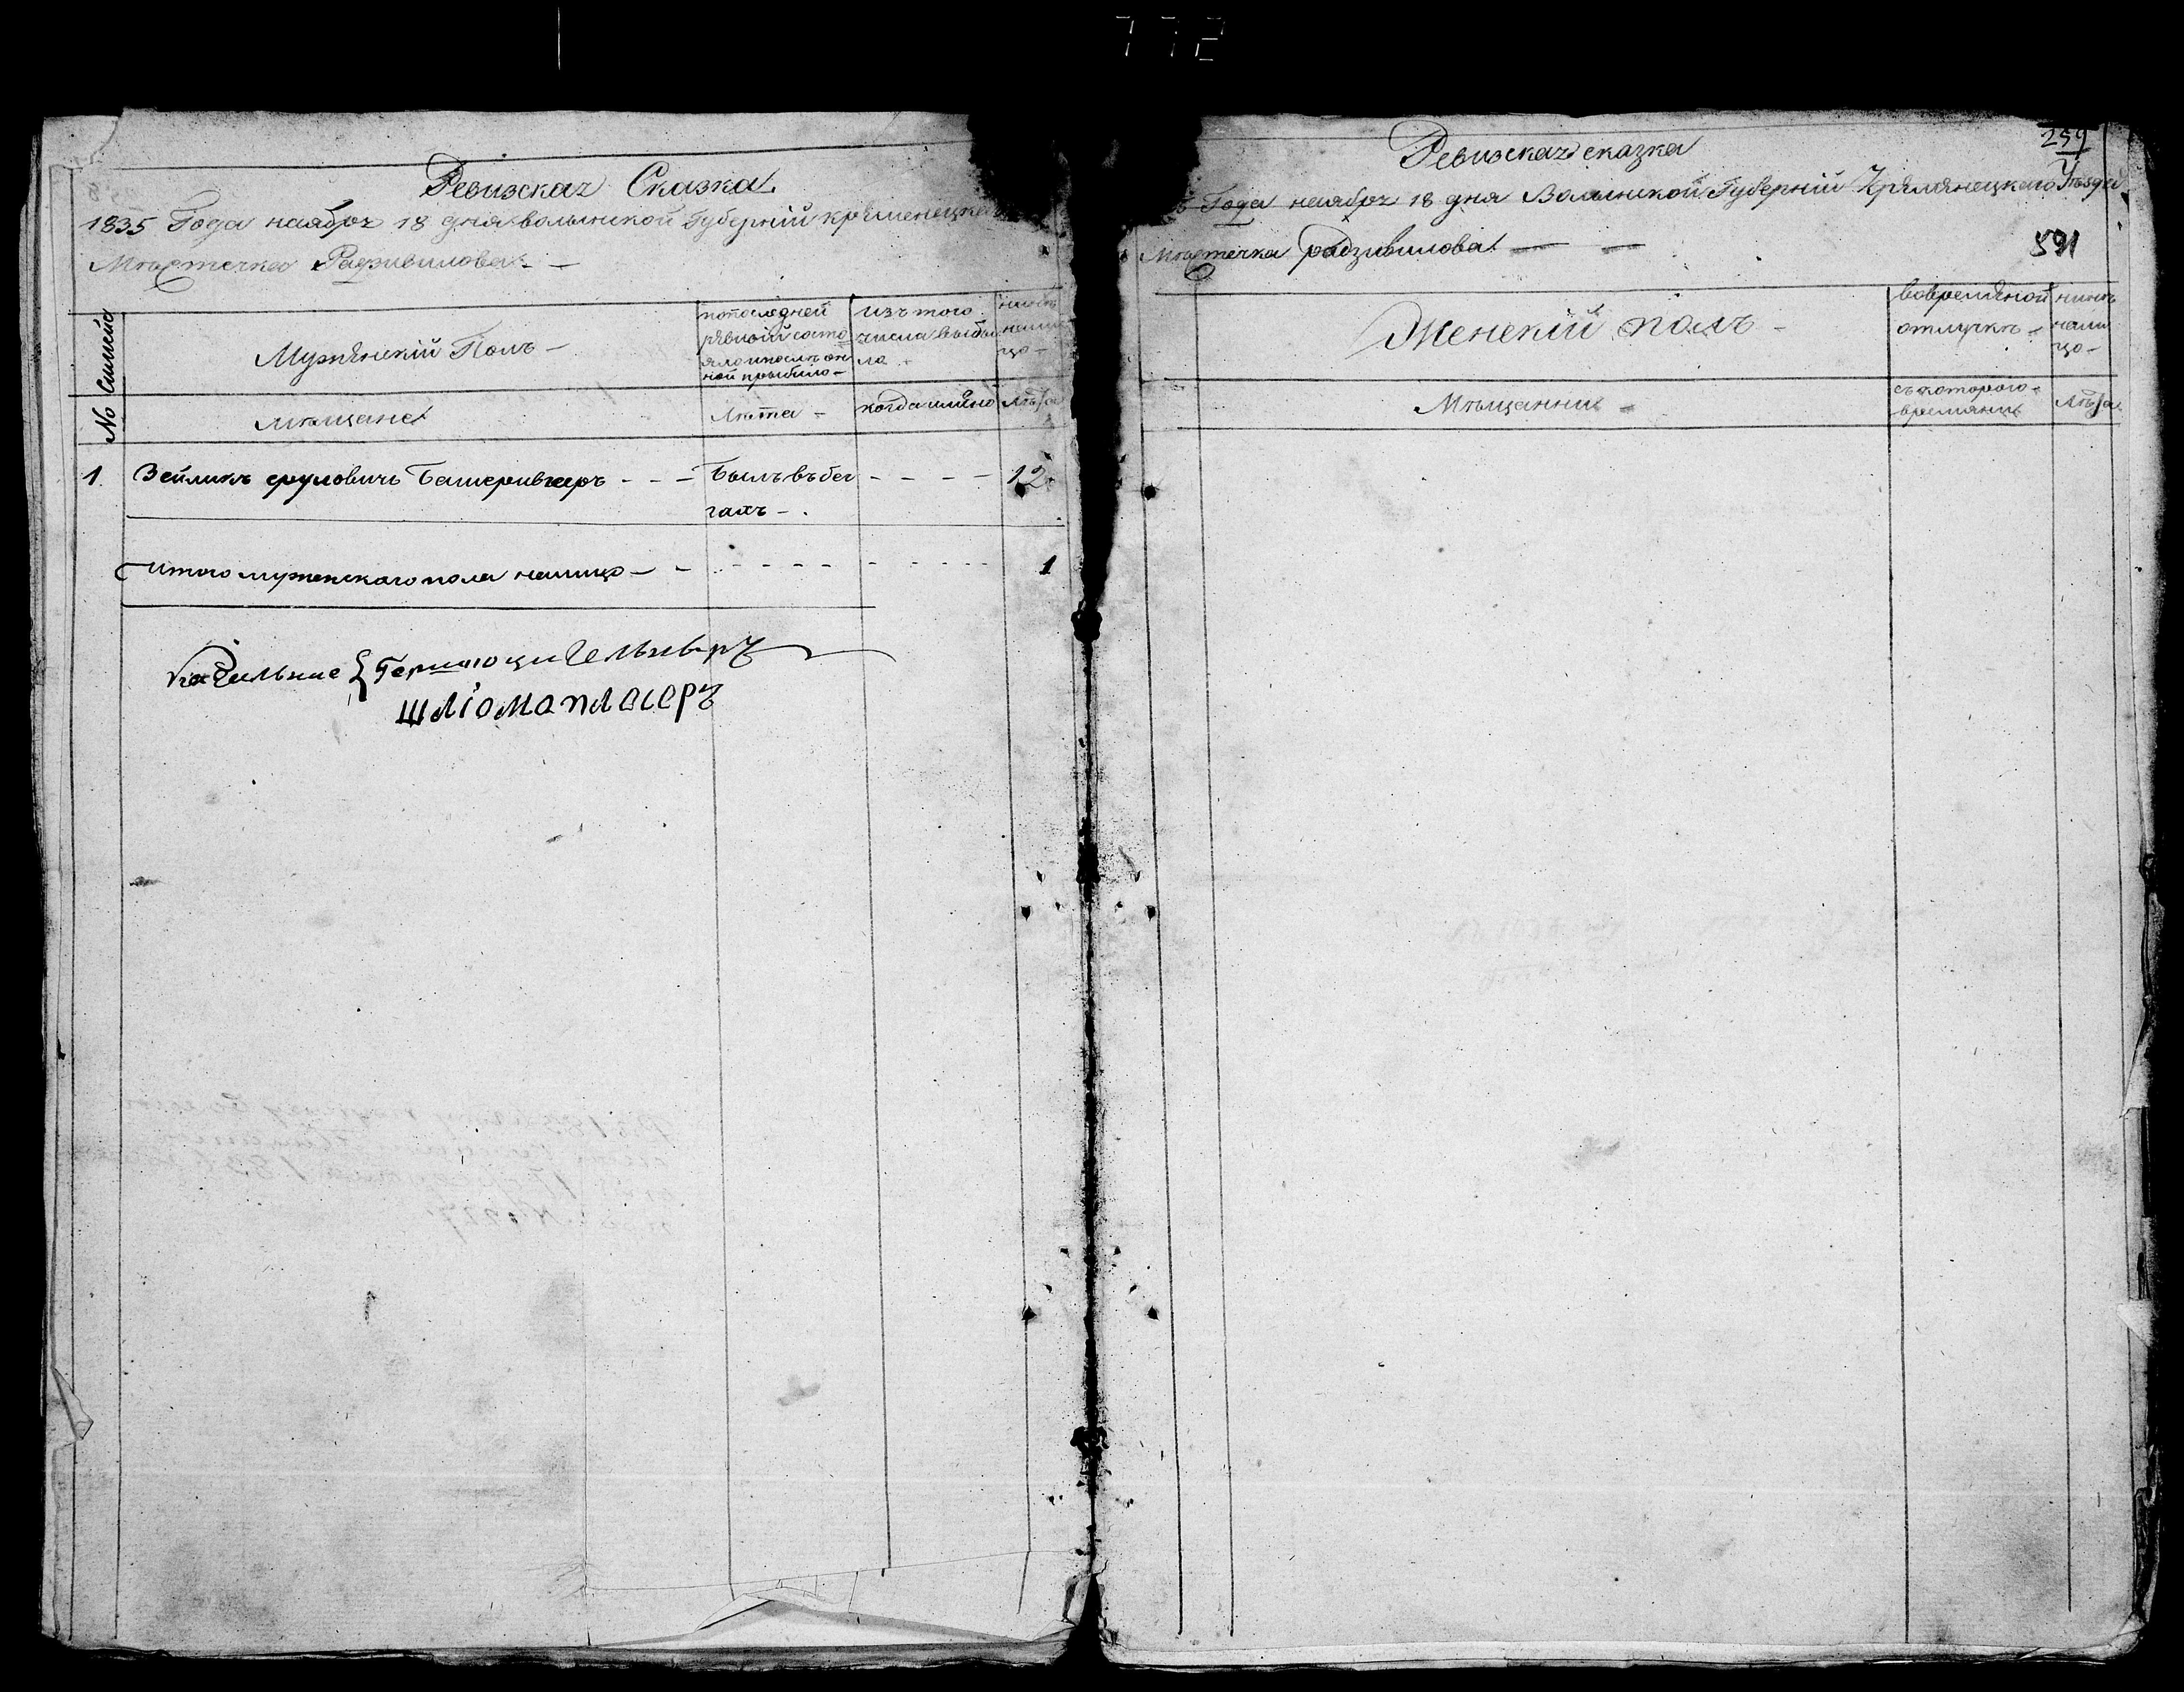 772
Ревизская Сказка
1835 Года наября 18 дня волынской Губерній кременецкаго
Мѣстечка Радзивилова
№ Симейс
Мужескій Полъ
попоследней
ревизій состо
яло ипослѣ он
ной прибыло
изътого
числа выбы
ло
ныне
нали
цо
мѣщане
Лѣта
когда имѣно
Лѣта
1. Зейликъ сруловичъ Башеривкеръ Былъ въ бег 12
гахъ
итого мужескаго пола налицо 1
шліома пласеръ
259
Ревизская сказка
5 Года наября 18 дня Волынской Губерній Кременецкаго Уѣзда
Мѣстечка радзивилова
591
Женскій полъ
вовременой
отлучкѣ
нынѣ
нали
цо
Мѣщанки
съкоторого
времяни
Лѣта